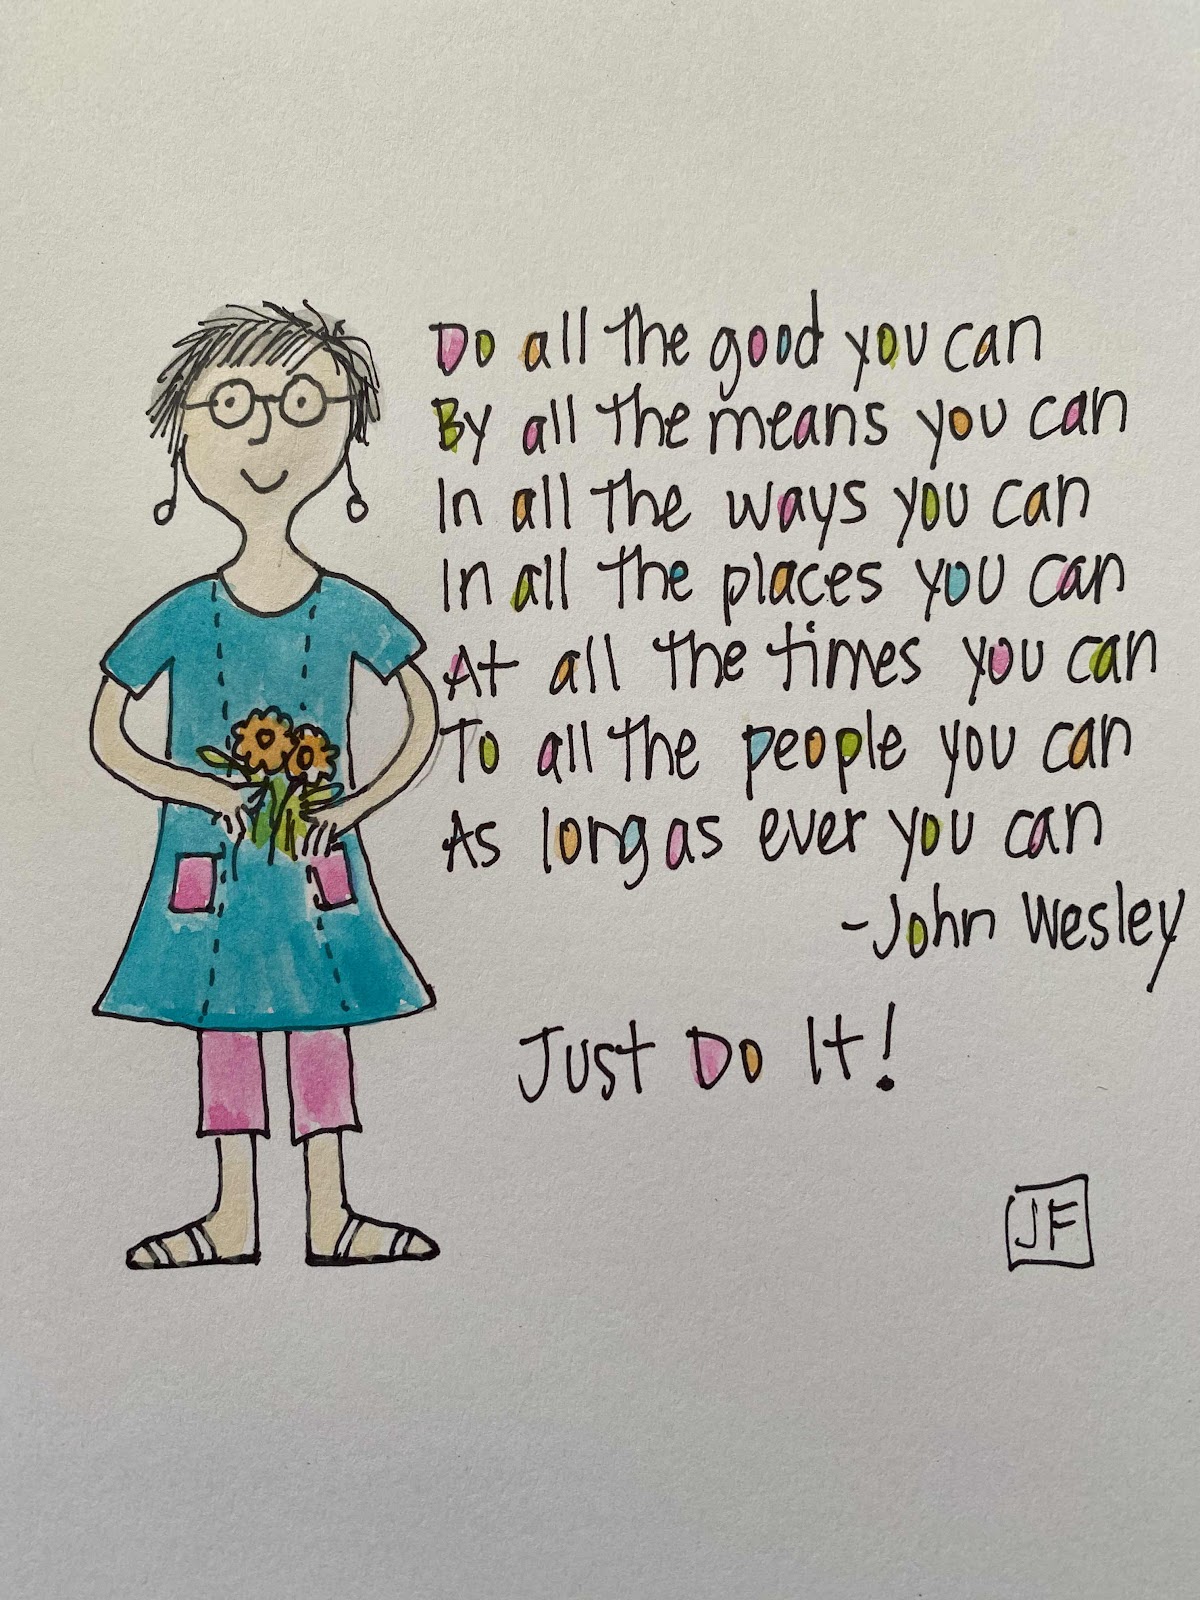 Do all the good you can
By all the means you can
In all the ways you can
In all the places you can
At all the times you can
To all the people you can
As long as ever you can
-John Wesley
Just Do It!
JF